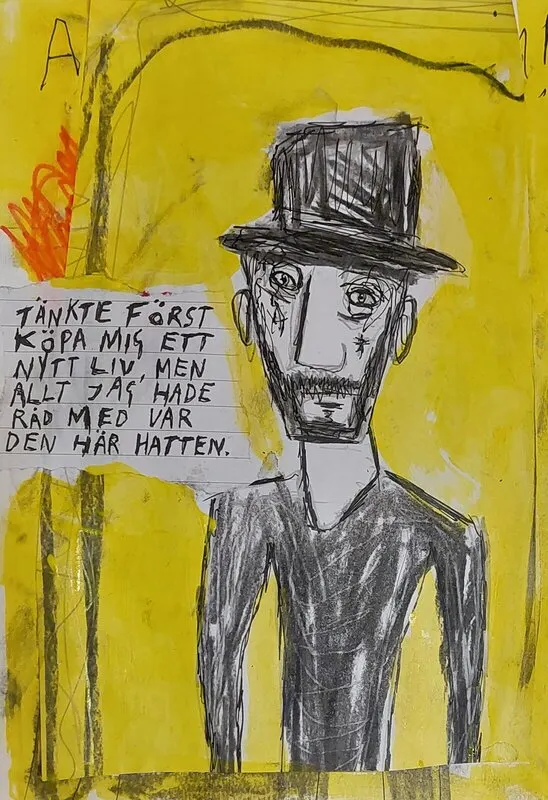 A
TÄNKTE FÖRST
KÖPA MIG ETT
NYTT LIV, MEN
ALLT JAG HADE
RÅD MED VAR
DEN HÄR HATTEN.